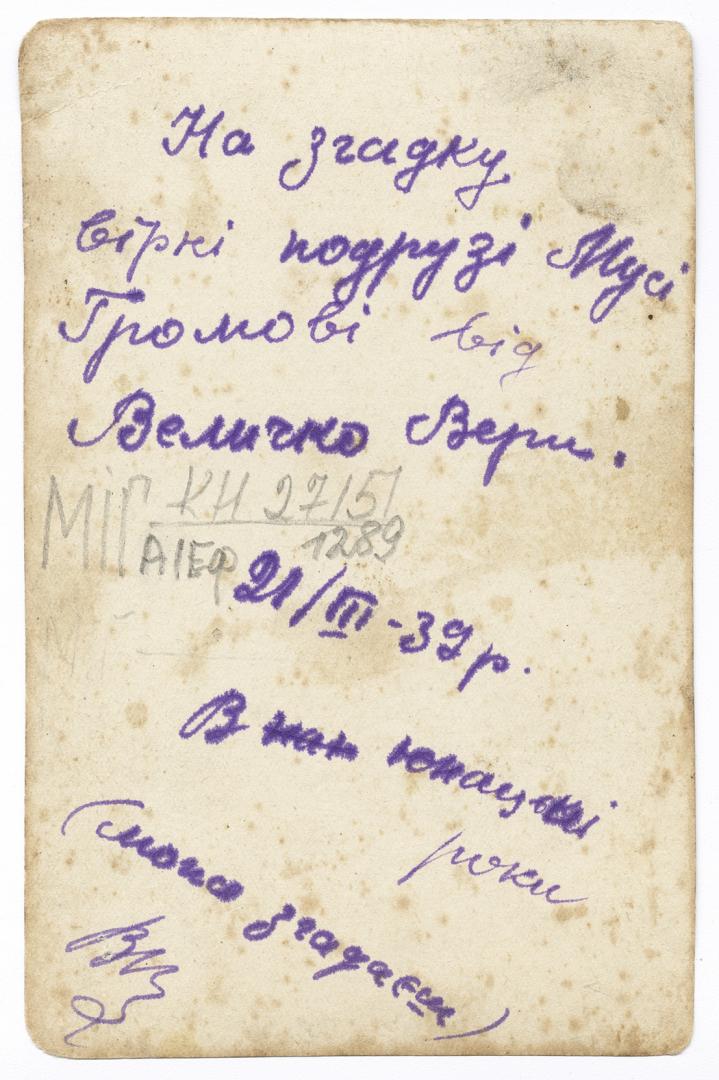 На згадку
вірні подрузі Мусі
Громові від
Величко Вери.
МІГ КН 27151
АІЕФ 1289
21/III-39р.
В наш юнацькі
роки
(мона згадаєш)